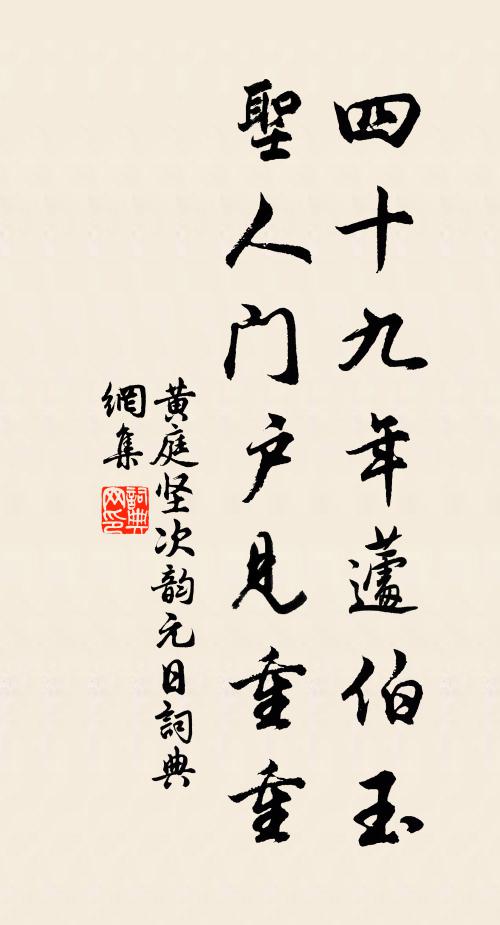 四十九年蘧伯玉
聖人門户見重重
黄庭坚次韵元日詞典
網集
詞典
网印